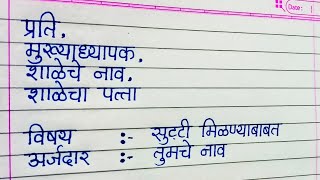 Date: 1
प्रति,
मुख्याध्यापक.
शाळेचे नाव.
शाळेचा पत्ता
विषय :- सुट्टी मिळण्याबाबत
अर्जदार :- तुमचे नाव